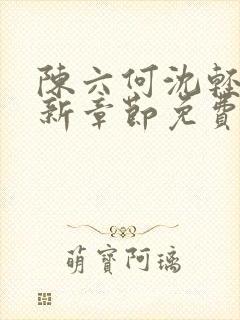 陳六何沈輕
新章節免費
萌寶阿璃